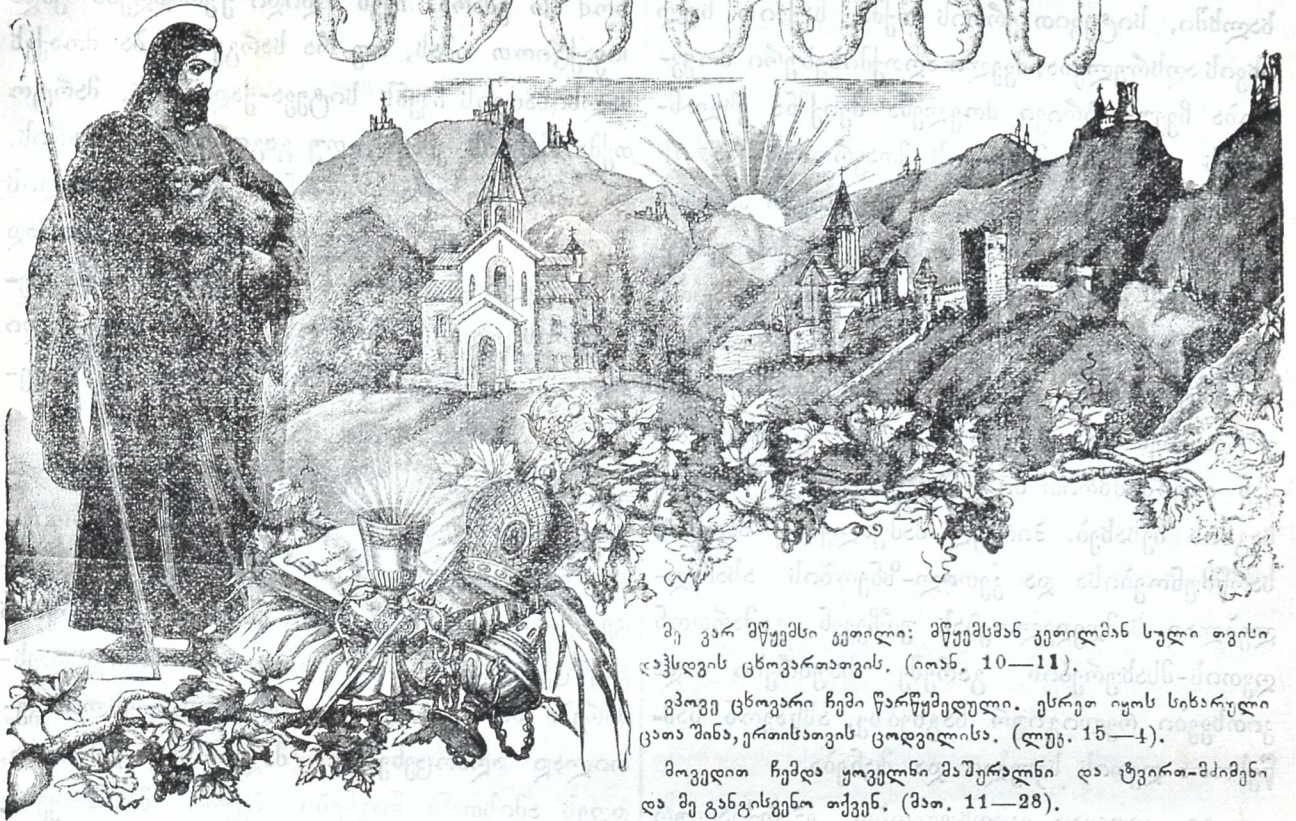 მე ვარ მწყემსი კეთილი; მწყემსმან კეთილმან სული თვისი
დაჰსდვის ცხოვართათვის. (იოან. 10—11).
ვპოვე ცხოვარი ჩემი წარწყმედული. ესრეთ იყოს სიხარული
ცათა შინა, ერთისათვის ცოდვილისა. (ლუკ. 15—4).
მოვედით ჩემდა ყოველნი მაშურალნი და ტვირთ-მძიმენი
და მე განგისვენო თქვენ. (მათ. 11—28).